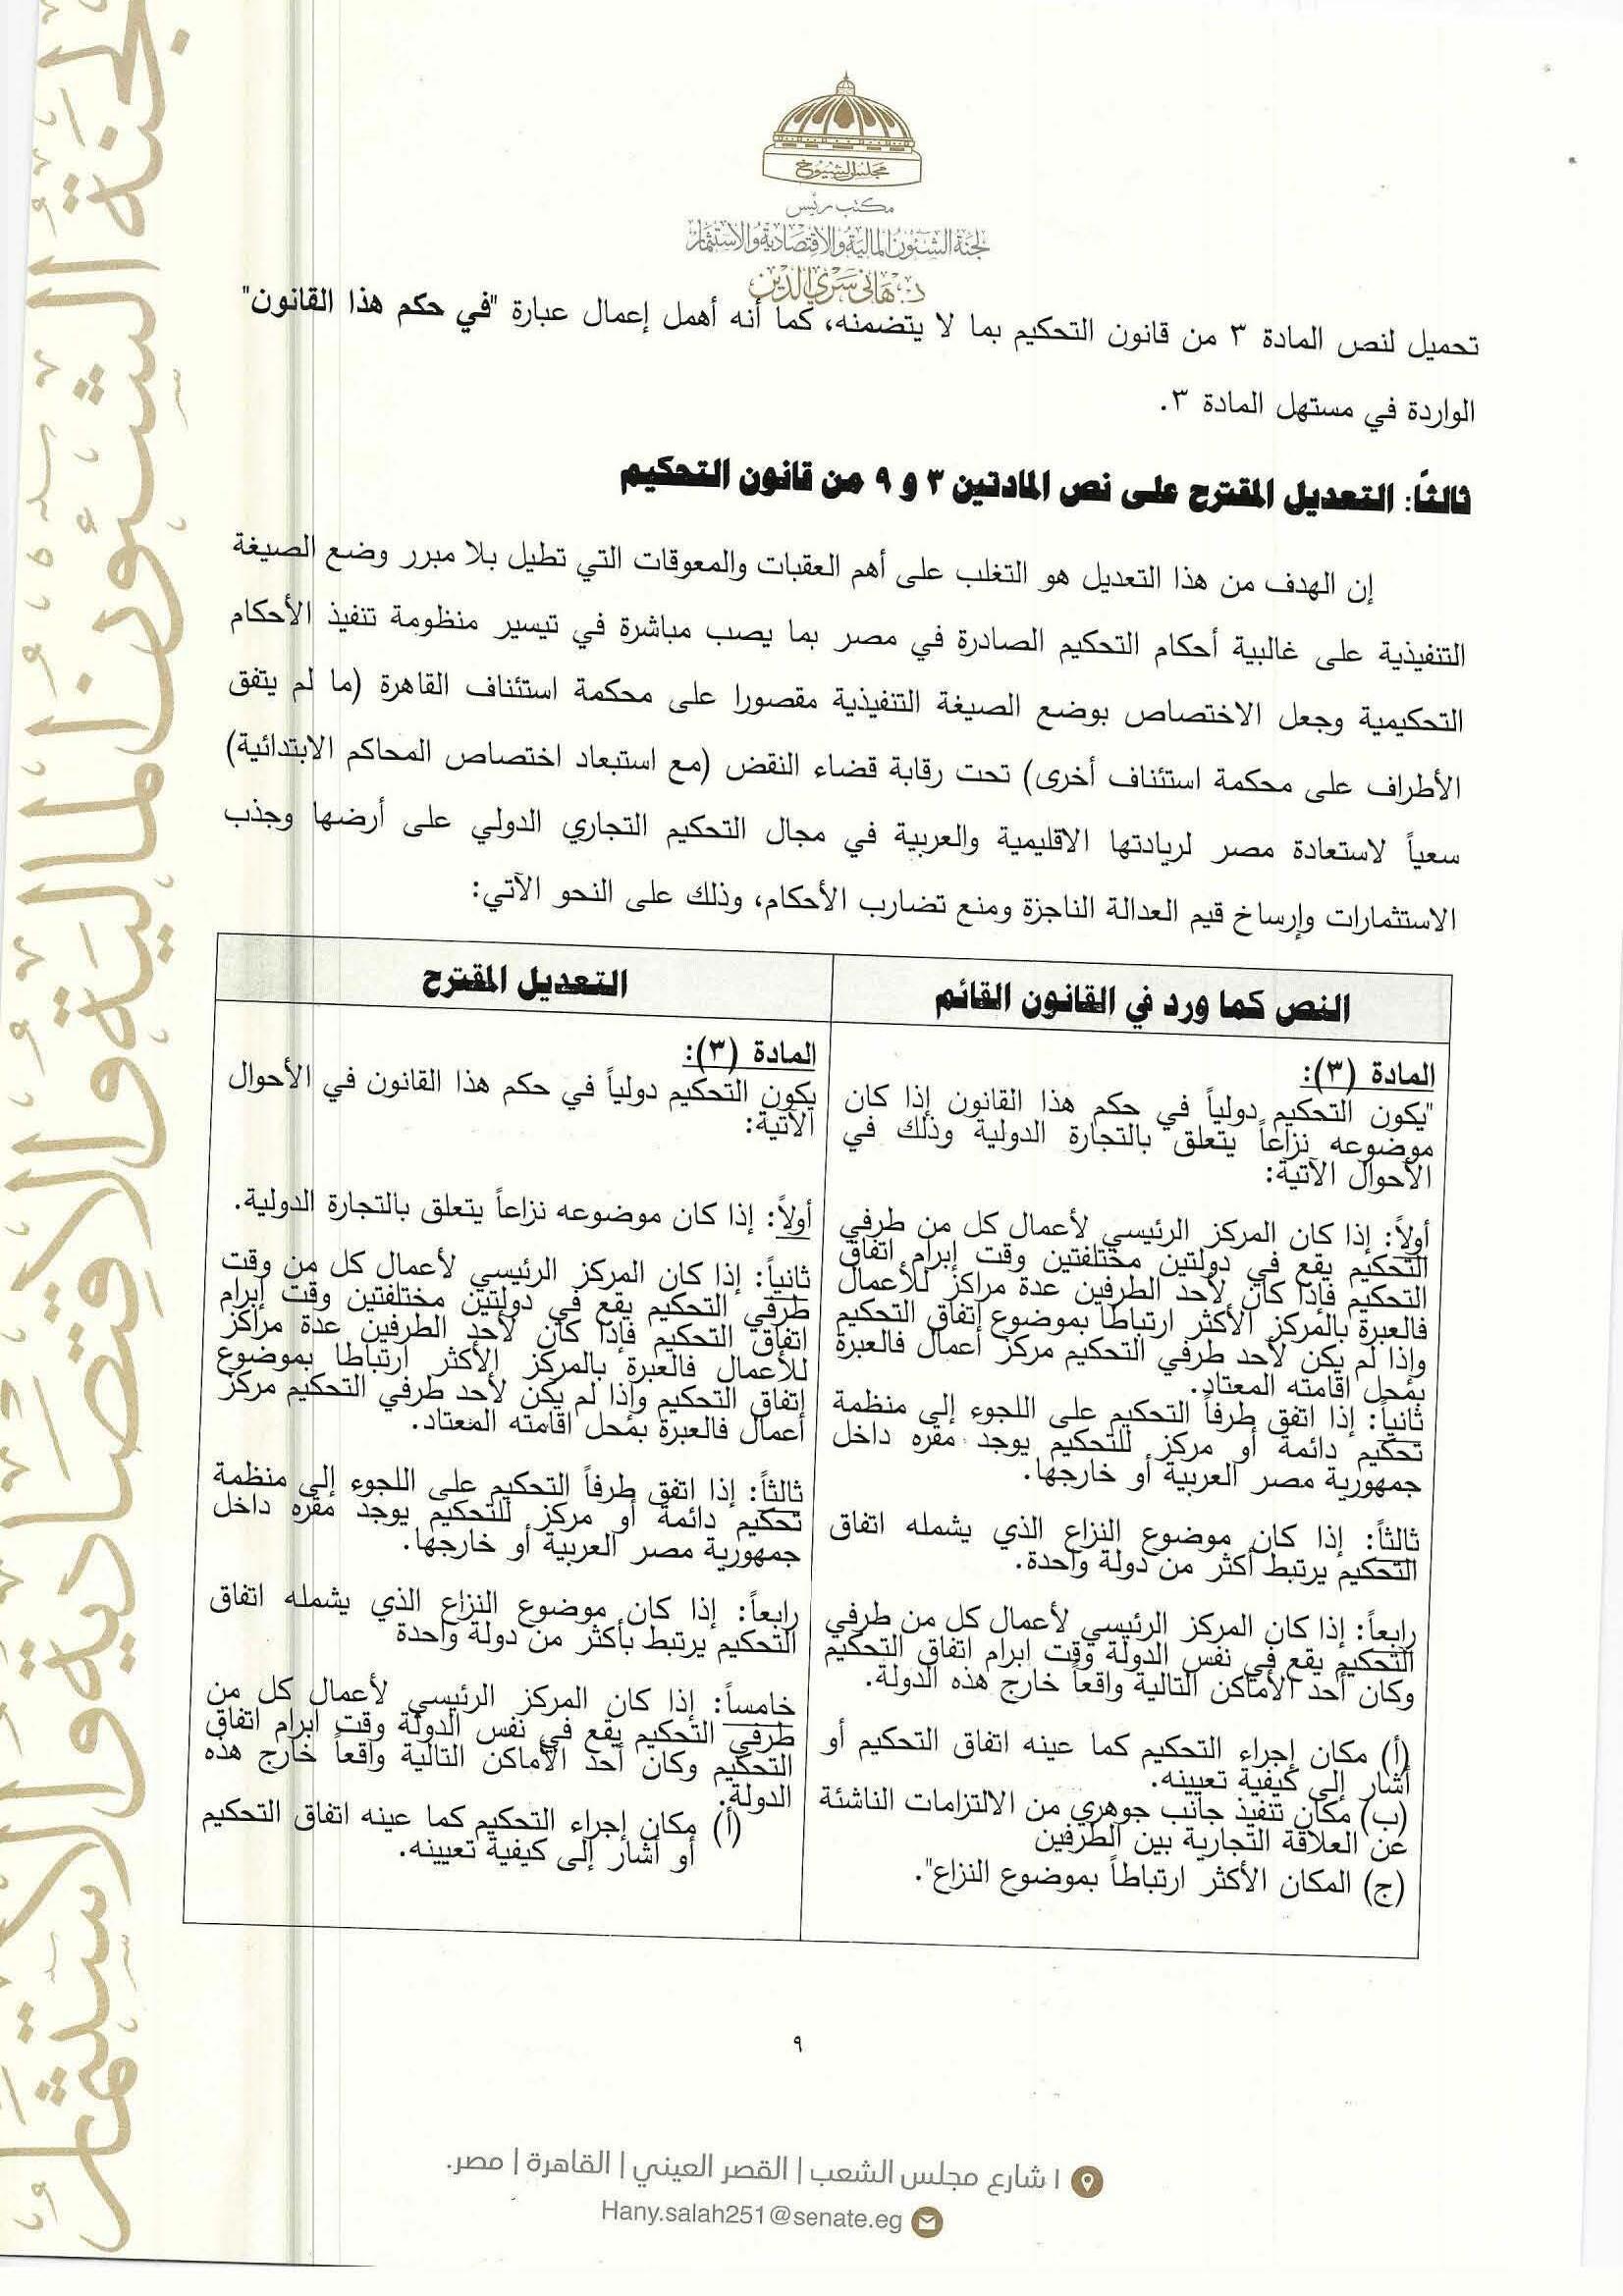 لجنة الشئون المالية والاقتصادية والاستثمار
مجلس الشيوخ
مكتب رئيس
لجنة الشئون المالية والاقتصادية والاستثمار
د. هاني سري الدين
تحميل لنص المادة ٣ من قانون التحكيم بما لا يتضمنه، كما أنه أهمل إعمال عبارة "في حكم هذا القانون"
الواردة في مستهل المادة ٣.
ثالثاً: التعديل المقترح على نص المادتين ٣ و ٩ من قانون التحكيم
إن الهدف من هذا التعديل هو التغلب على أهم العقبات والمعوقات التي تطيل بلا مبرر وضع الصيغة
التنفيذية على غالبية أحكام التحكيم الصادرة في مصر بما يصب مباشرة في تيسير منظومة تنفيذ الأحكام
التحكيمية وجعل الاختصاص بوضع الصيغة التنفيذية مقصورا على محكمة استئناف القاهرة (ما لم يتفق
الأطراف على محكمة استئناف أخرى) تحت رقابة قضاء النقض (مع استبعاد اختصاص المحاكم الابتدائية)
سعياً لاستعادة مصر لريادتها الاقليمية والعربية في مجال التحكيم التجاري الدولي على أرضها وجذب
الاستثمارات وإرساخ قيم العدالة الناجزة ومنع تضارب الأحكام، وذلك على النحو الآتي:
النص كما ورد في القانون القائم
المادة (٣):
"يكون التحكيم دولياً في حكم هذا القانون إذا كان
موضوعه نزاعاً يتعلق بالتجارة الدولية وذلك في
الأحوال الآتية:
أولاً: إذا كان المركز الرئيسي لأعمال كل من طرفي
التحكيم يقع في دولتين مختلفتين وقت إبرام اتفاق
التحكيم فإذا كان لأحد الطرفين عدة مراكز للأعمال
فالعبرة بالمركز الأكثر ارتباطاً بموضوع إتفاق التحكيم
وإذا لم يكن لأحد طرفي التحكيم مركز أعمال فالعبرة
بمحل اقامته المعتاد.
ثانياً: إذا اتفق طرفاً التحكيم على اللجوء إلى منظمة
تحكيم دائمة أو مركز للتحكيم يوجد مقره داخل
جمهورية مصر العربية أو خارجها.
ثالثاً: إذا كان موضوع النزاع الذي يشمله اتفاق
التحكيم يرتبط أكثر من دولة واحدة.
رابعاً: إذا كان المركز الرئيسي لأعمال كل من طرفي
التحكيم يقع في نفس الدولة وقت ابرام اتفاق التحكيم
وكان أحد الأماكن التالية واقعاً خارج هذه الدولة.
(أ) مكان إجراء التحكيم كما عينه اتفاق التحكيم أو
أشار إلى كيفية تعيينه.
(ب) مكان تنفيذ جانب جوهري من الالتزامات الناشئة
عن العلاقة التجارية بين الطرفين
(ج) المكان الأكثر ارتباطاً بموضوع النزاع".
التعديل المقترح
المادة (٣):
يكون التحكيم دولياً في حكم هذا القانون في الأحوال
الآتية:
أولاً: إذا كان موضوعه نزاعاً يتعلق بالتجارة الدولية.
ثانياً: إذا كان المركز الرئيسي لأعمال كل من وقت
طرفي التحكيم يقع في دولتين مختلفتين وقت إبرام
اتفاق التحكيم فإذا كان لأحد الطرفين عدة مراكز
للأعمال فالعبرة بالمركز الأكثر ارتباطا بموضوع
إتفاق التحكيم وإذا لم يكن لأحد طرفي التحكيم مركز
أعمال فالعبرة بمحل اقامته المعتاد.
ثالثاً: إذا اتفق طرفاً التحكيم على اللجوء إلى منظمة
تحكيم دائمة أو مركز للتحكيم يوجد مقره داخل
جمهورية مصر العربية أو خارجها.
رابعاً: إذا كان موضوع النزاع الذي يشمله اتفاق
التحكيم يرتبط بأكثر من دولة واحدة
خامساً: إذا كان المركز الرئيسي لأعمال كل من
طرفي التحكيم يقع في نفس الدولة وقت ابرام اتفاق
التحكيم وكان أحد الأماكن التالية واقعاً خارج هذه
الدولة.
(أ) مكان إجراء التحكيم كما عينه اتفاق التحكيم
أو أشار إلى كيفية تعيينه.
٩
١ شارع مجلس الشعب | القصر العيني | القاهرة | مصر.
Hany.salah251@senate.eg